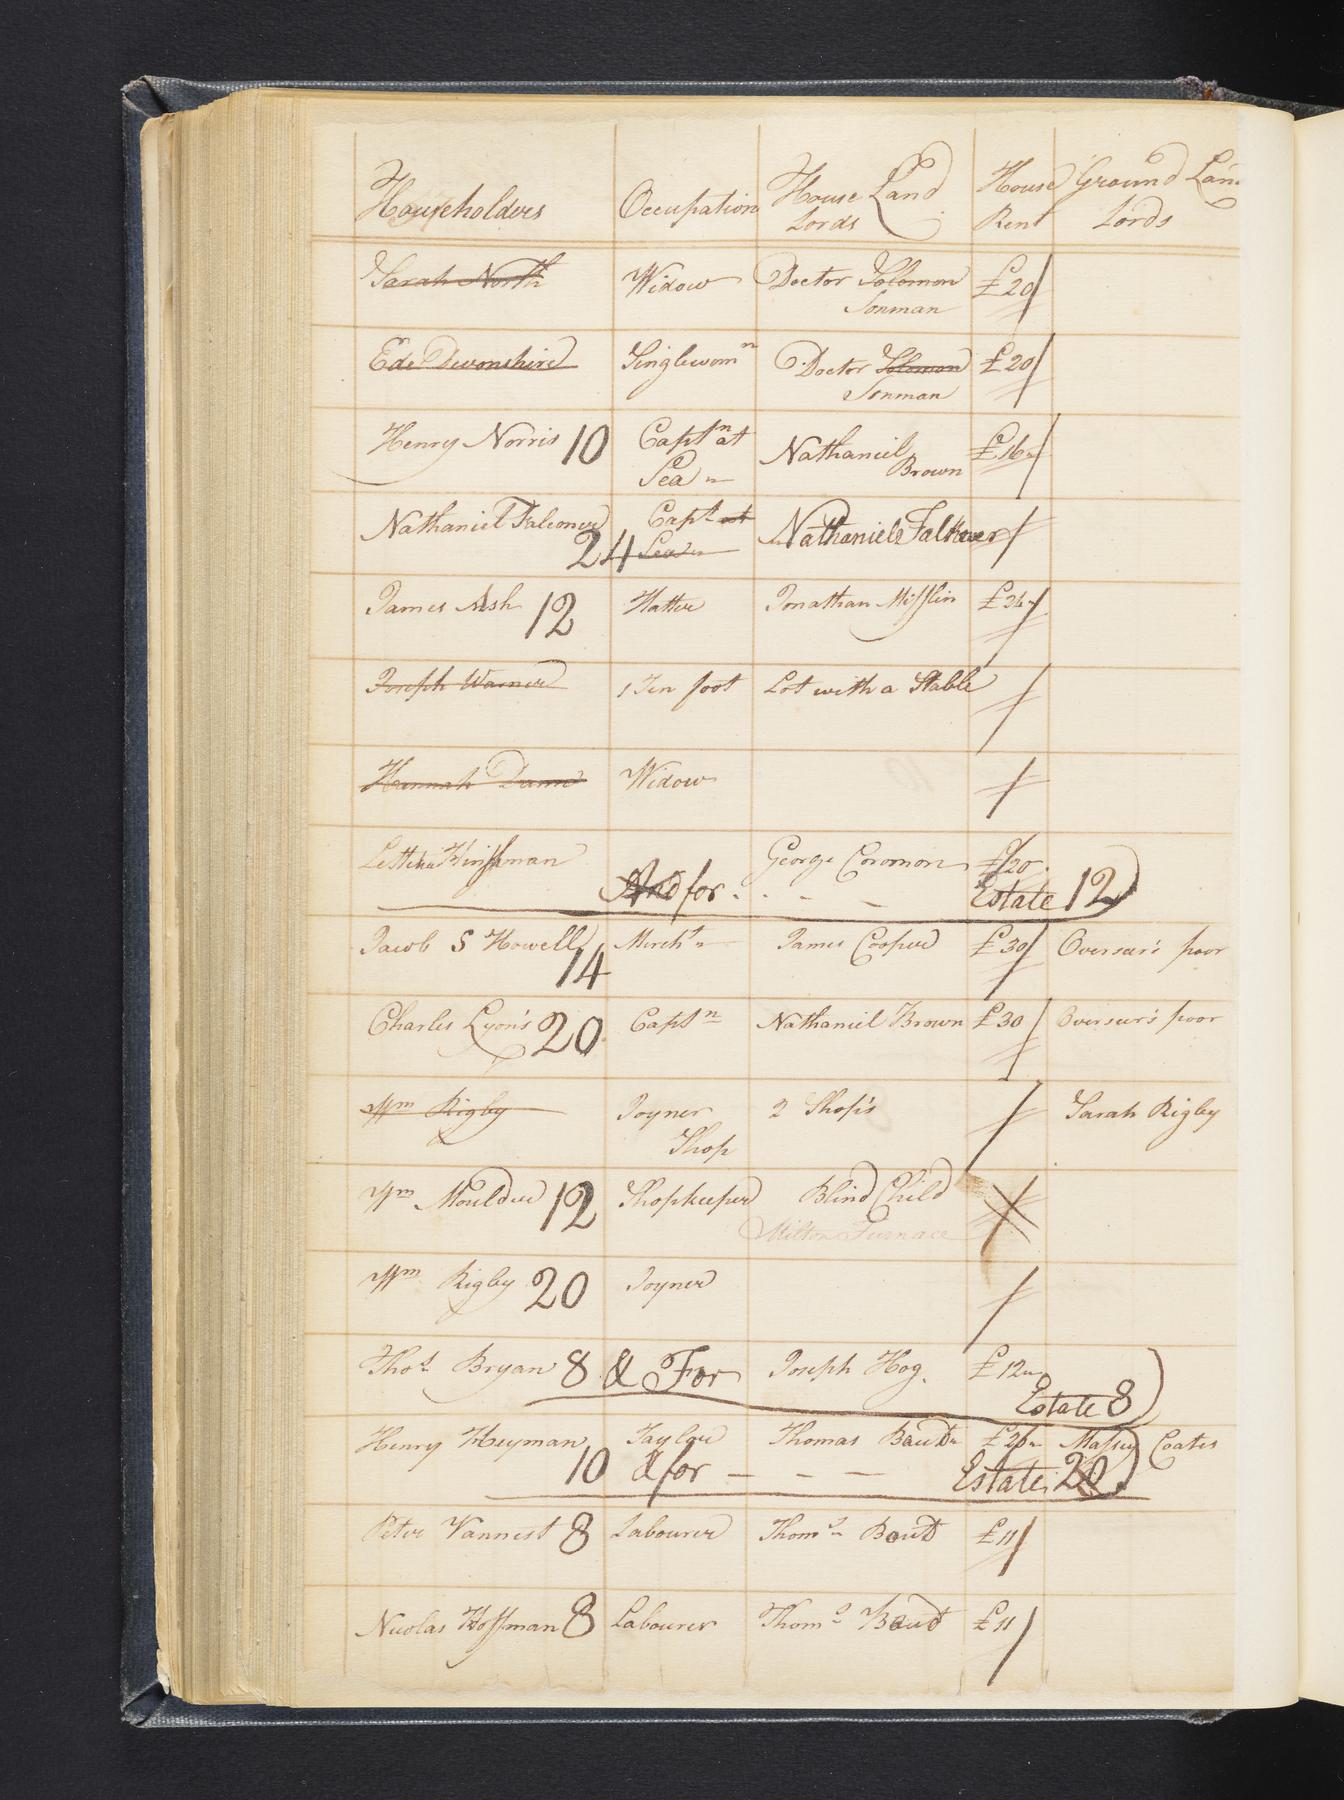 Householders Occupation House Land Lords House Rent Ground Land Lords
Sarah North Widow Doctor Solomon £20
Sonman
Ede Devonshire Singlewomn Doctor Solomon £20
Sonman
Henry Norris 10 Captn at Nathaniel £16
Sea Brown
Nathaniel Falconer Capt at Nathaniel Falkner
24 Sea
James Ash 12 Hatter Jonathan Mifflin £36
Joseph Warner 1 Ten foot Lot with a Stable
Hannah Dunn Widow
Hinchman George Coromon £20
And for - - - Estate 12
Jacob S Howell Mercht James Cooper £30 Overseer's poor
14
Charles Lyon's 20 Captn Nathaniel Brown £30 Overseer's poor
Wm Rigby Joyner 2 Shop's Sarah Rigby
Shop
Wm Moulder 12 Shopkeeper Blind Child
Milton Furnace
Wm Rigby 20 Joyner
Thos Bryan 8 & For Joseph Hog. £12
Estate 8
Henry Heyman Taylor Thomas Baud £26 Massey Coates
10 & for - - - Estate 20
Peter Vannest 8 Labourer Thoms Baud £11
Nicolas Hoffman 8 Labourer Thoms Baud £11